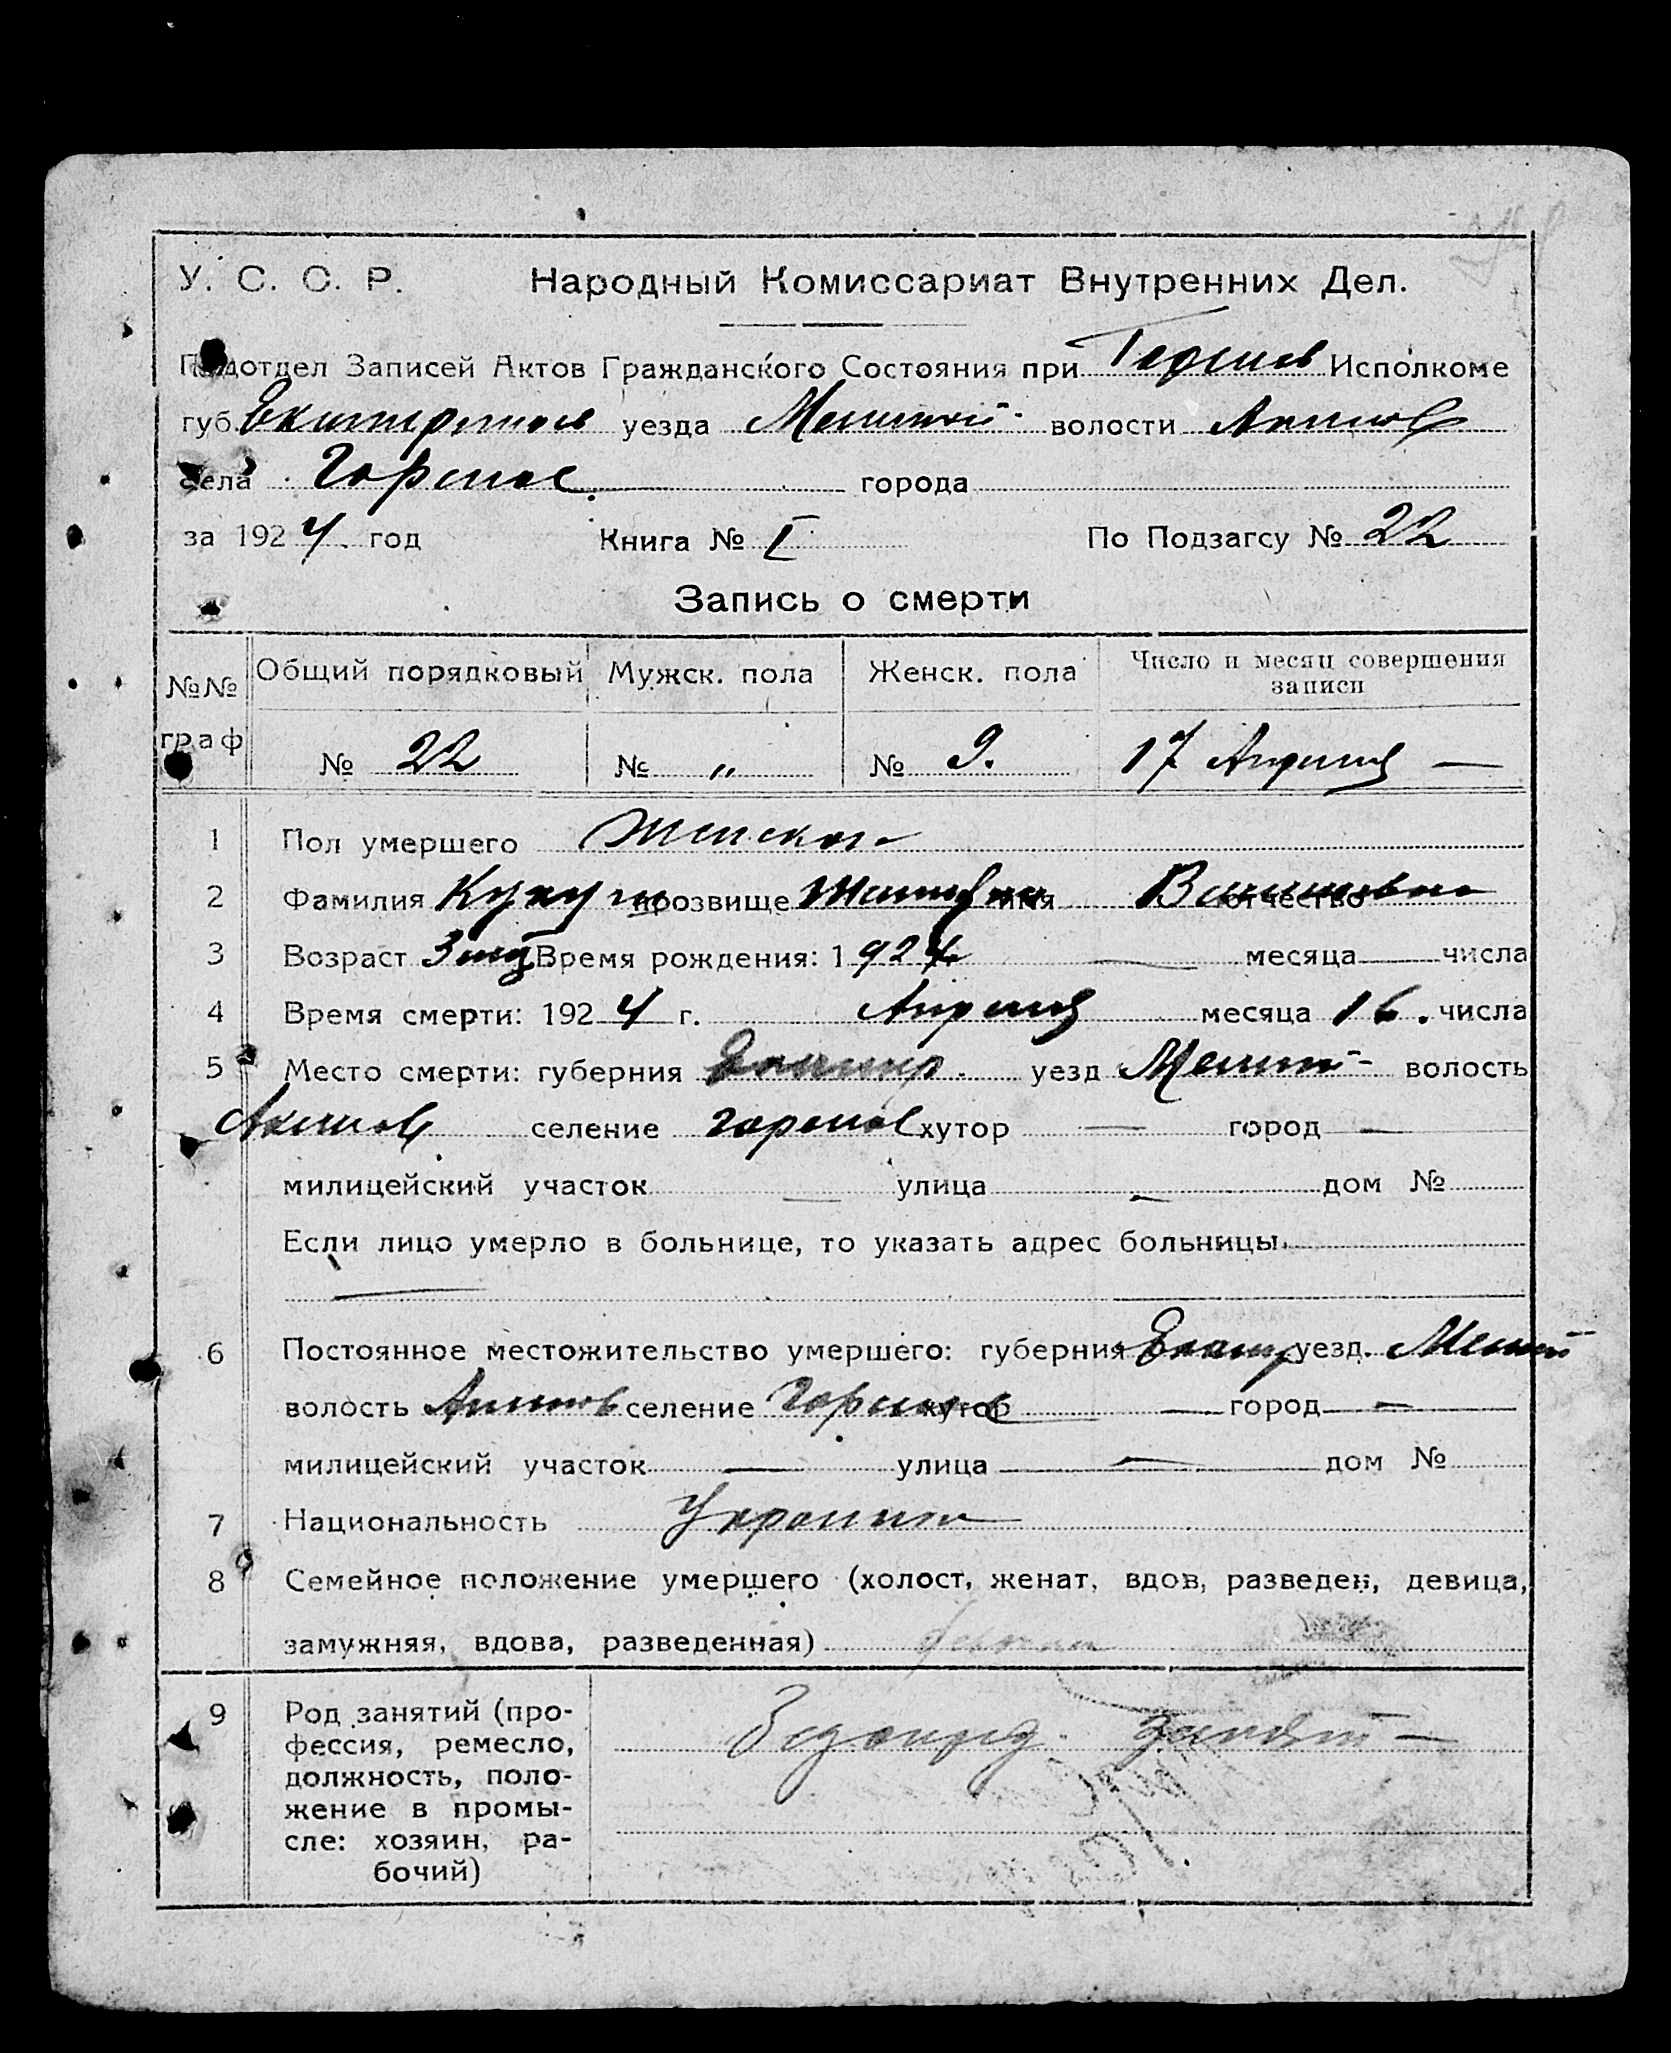 У. С. С. Р. Народный Комиссариат Внутренних Дел.
Подотдел Записей Актов Гражданского Состояния при Исполкоме
губ. уезда Мелит волости Акимов
села Горелое города
за 1924 год Книга № I По Подзагсу № 22
Запись о смерти
№№ граф Общий порядковый Мужск. пола Женск. пола Число и месяц совершения записи
№ 22 № „ № 9. 17 Апреля —
1 Пол умершего Женская
2 Фамилия прозвище имя отчество
3 Возраст 3 Время рождения: 1924 — месяца — числа
4 Время смерти: 1924 г. Апреля месяца 16. числа
5 Место смерти: губерния Екатер. уезд Мелит волость
Акимов селение Горелое хутор — город —
милицейский участок — улица — дом №
Если лицо умерло в больнице, то указать адрес больницы.
—
6 Постоянное местожительство умершего: губерния Екатер уезд. Мелит
волость Акимов селение Горелое хутор — город —
милицейский участок — улица — дом №
7 Национальность Украинка
8 Семейное положение умершего (холост, женат, вдов, разведен, девица,
замужняя, вдова, разведенная)
9 Род занятий (про-
фессия, ремесло,
должность, поло-
жение в промы-
сле: хозяин, ра-
бочий)